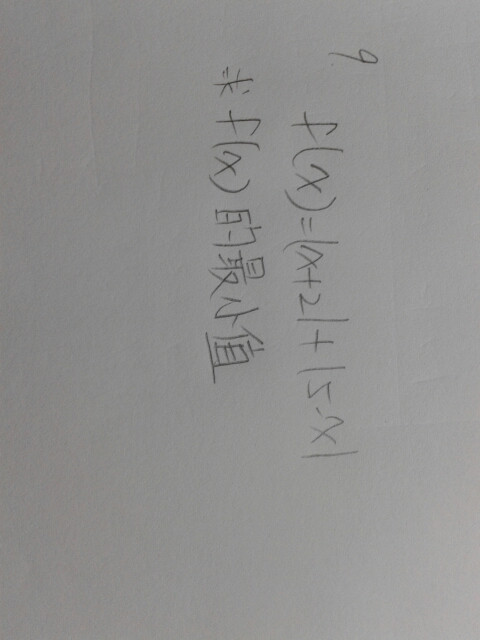 9.
f(x)=|x+2|+|5-x|
求f(x)的最小值